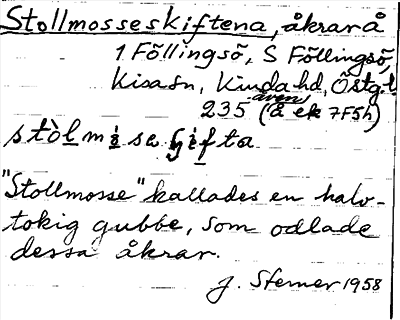 Stollmosseskiftena, åkrar å
1 Föllingsö, S Föllingsö,
Kisa sn, Kinda hd, Östg.l.
även
235 (å ek 7F5h)
"Stollmosse" kallades en halv-
tokig gubbe, som odlade
dessa åkrar.
J. Sterner 1958